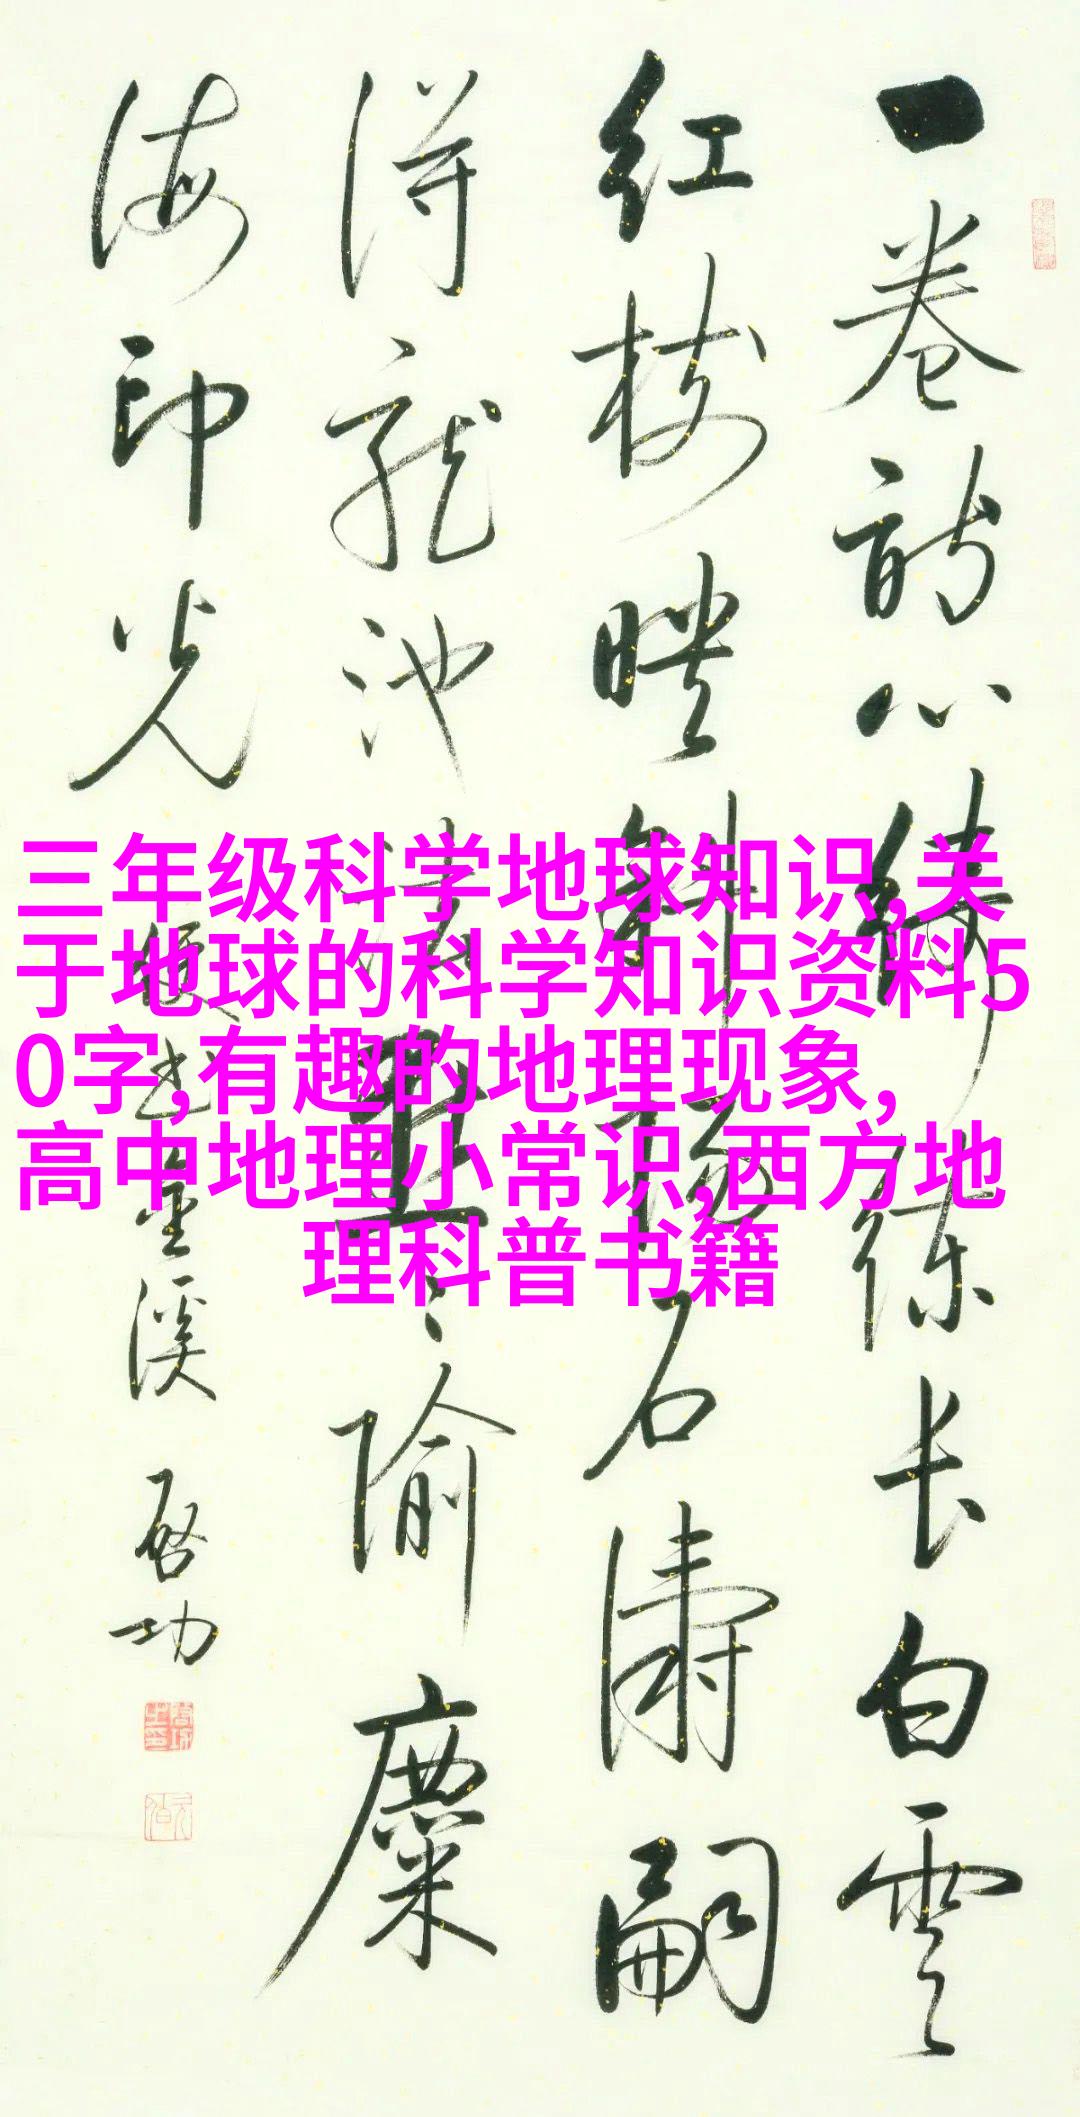 一卷心长白云
红树石涛嗣
得龙池隃麋
海印光
金溪 启功
三年级科学地球知识,关
于地球的科学知识资料5
0字,有趣的地理现象,
高中地理小常识,西方地
理科普书籍